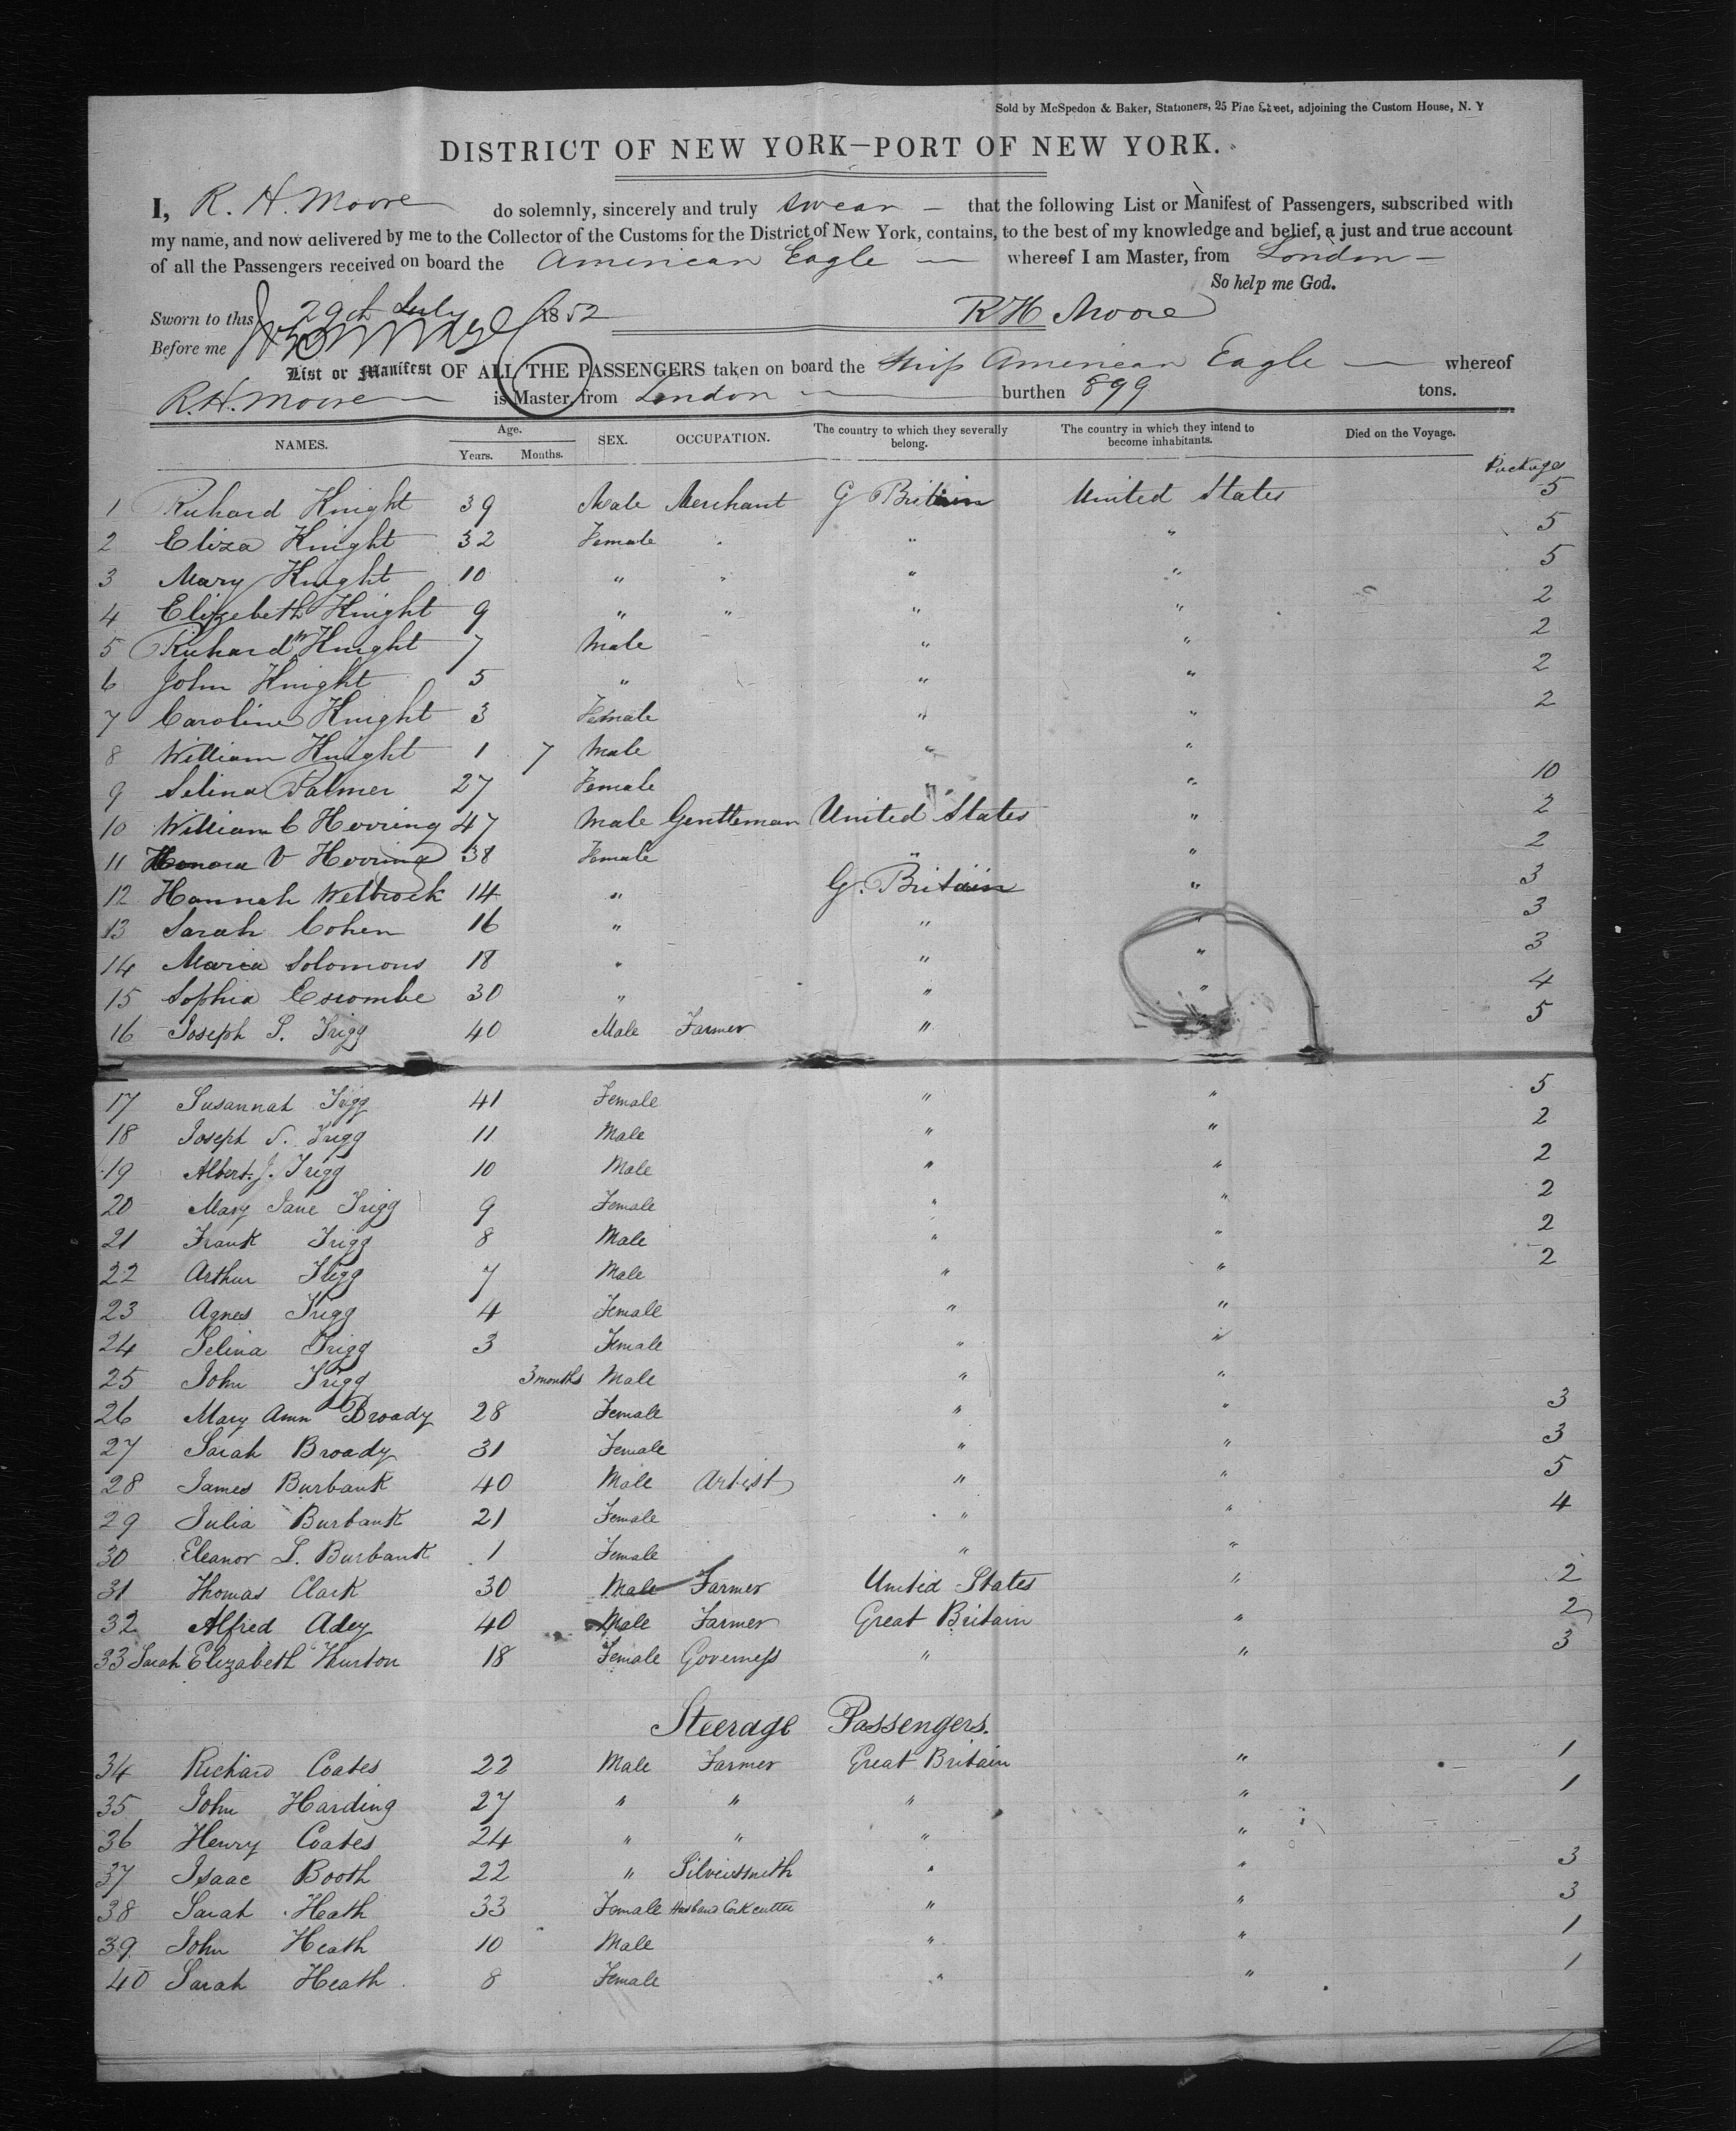 Sold by McSpedon & Baker, Stationers, 25 Pine Street, adjoining the Custom House, N. Y
DISTRICT OF NEW YORK—PORT OF NEW YORK.
I, R. H. Moore do solemnly, sincerely and truly swear — that the following List or Manifest of Passengers, subscribed with
my name, and now delivered by me to the Collector of the Customs for the District of New York, contains, to the best of my knowledge and belief, a just and true account
of all the Passengers received on board the American Eagle — whereof I am Master, from London —
So help me God.
Sworn to this 29th July 1852 RH Moore
Before me
List or Manifest OF ALL THE PASSENGERS taken on board the Ship American Eagle — whereof
R.H. Moore — is Master, from London — burthen 899 tons.
NAMES. Age. Years. Months. SEX. OCCUPATION. The country to which they severally belong. The country in which they intend to become inhabitants. Died on the Voyage. Packages
1 Richard Knight 39 Male Merchant G Britain United States 5
2 Eliza Knight 32 Female " " " 5
3 Mary Knight 10 " " " " 5
4 Elizebeth Knight 9 " " " " 2
5 Richard Knight 7 Male " " 2
6 John Knight 5 " " " 2
7 Caroline Knight 3 Female " " 2
8 William Knight 1 7 Male " "
9 Selina Palmer 27 Female " " 10
10 William C Hovring 47 Male Gentleman United States " 2
11 V Hovring 38 Female " " 2
12 Hannah Welbrock 14 " G. Britain " 3
13 Sarah Cohen 16 " " " 3
14 Maria Solomons 18 " " " 3
15 Sophia Escombe 30 " " " 4
16 Joseph S. Trigg 40 Male Farmer " 5
17 Susannah Trigg 41 Female " " 5
18 Joseph S. Trigg 11 Male " " 2
19 Albert J. Trigg 10 Male " " 2
20 Mary Jane Trigg 9 Female " " 2
21 Frank Trigg 8 Male " " 2
22 Arthur Trigg 7 Male " " 2
23 Agnes Trigg 4 Female " "
24 Selina Trigg 3 Female " "
25 John Trigg 3 months Male " "
26 Mary Ann Broady 28 Female " " 3
27 Sarah Broady 31 Female " " 3
28 James Burbank 40 Male Artist " " 5
29 Julia Burbank 21 Female " " 4
30 Eleanor L. Burbank 1 Female " "
31 Thomas Clark 30 Male Farmer United States " 2
32 Alfred Adey 40 Male Farmer Great Britain " 2
33 Sarah Elizabeth Thurton 18 Female Governess " " 3
Steerage Passengers.
34 Richard Coates 22 Male Farmer Great Britain " 1
35 John Harding 27 " " " " 1
36 Henry Coates 24 " " " "
37 Isaac Booth 22 " Silversmith " " 3
38 Sarah Heath 33 Female Husband Cork cutter " " 3
39 John Heath 10 Male " " 1
40 Sarah Heath 8 Female " " 1